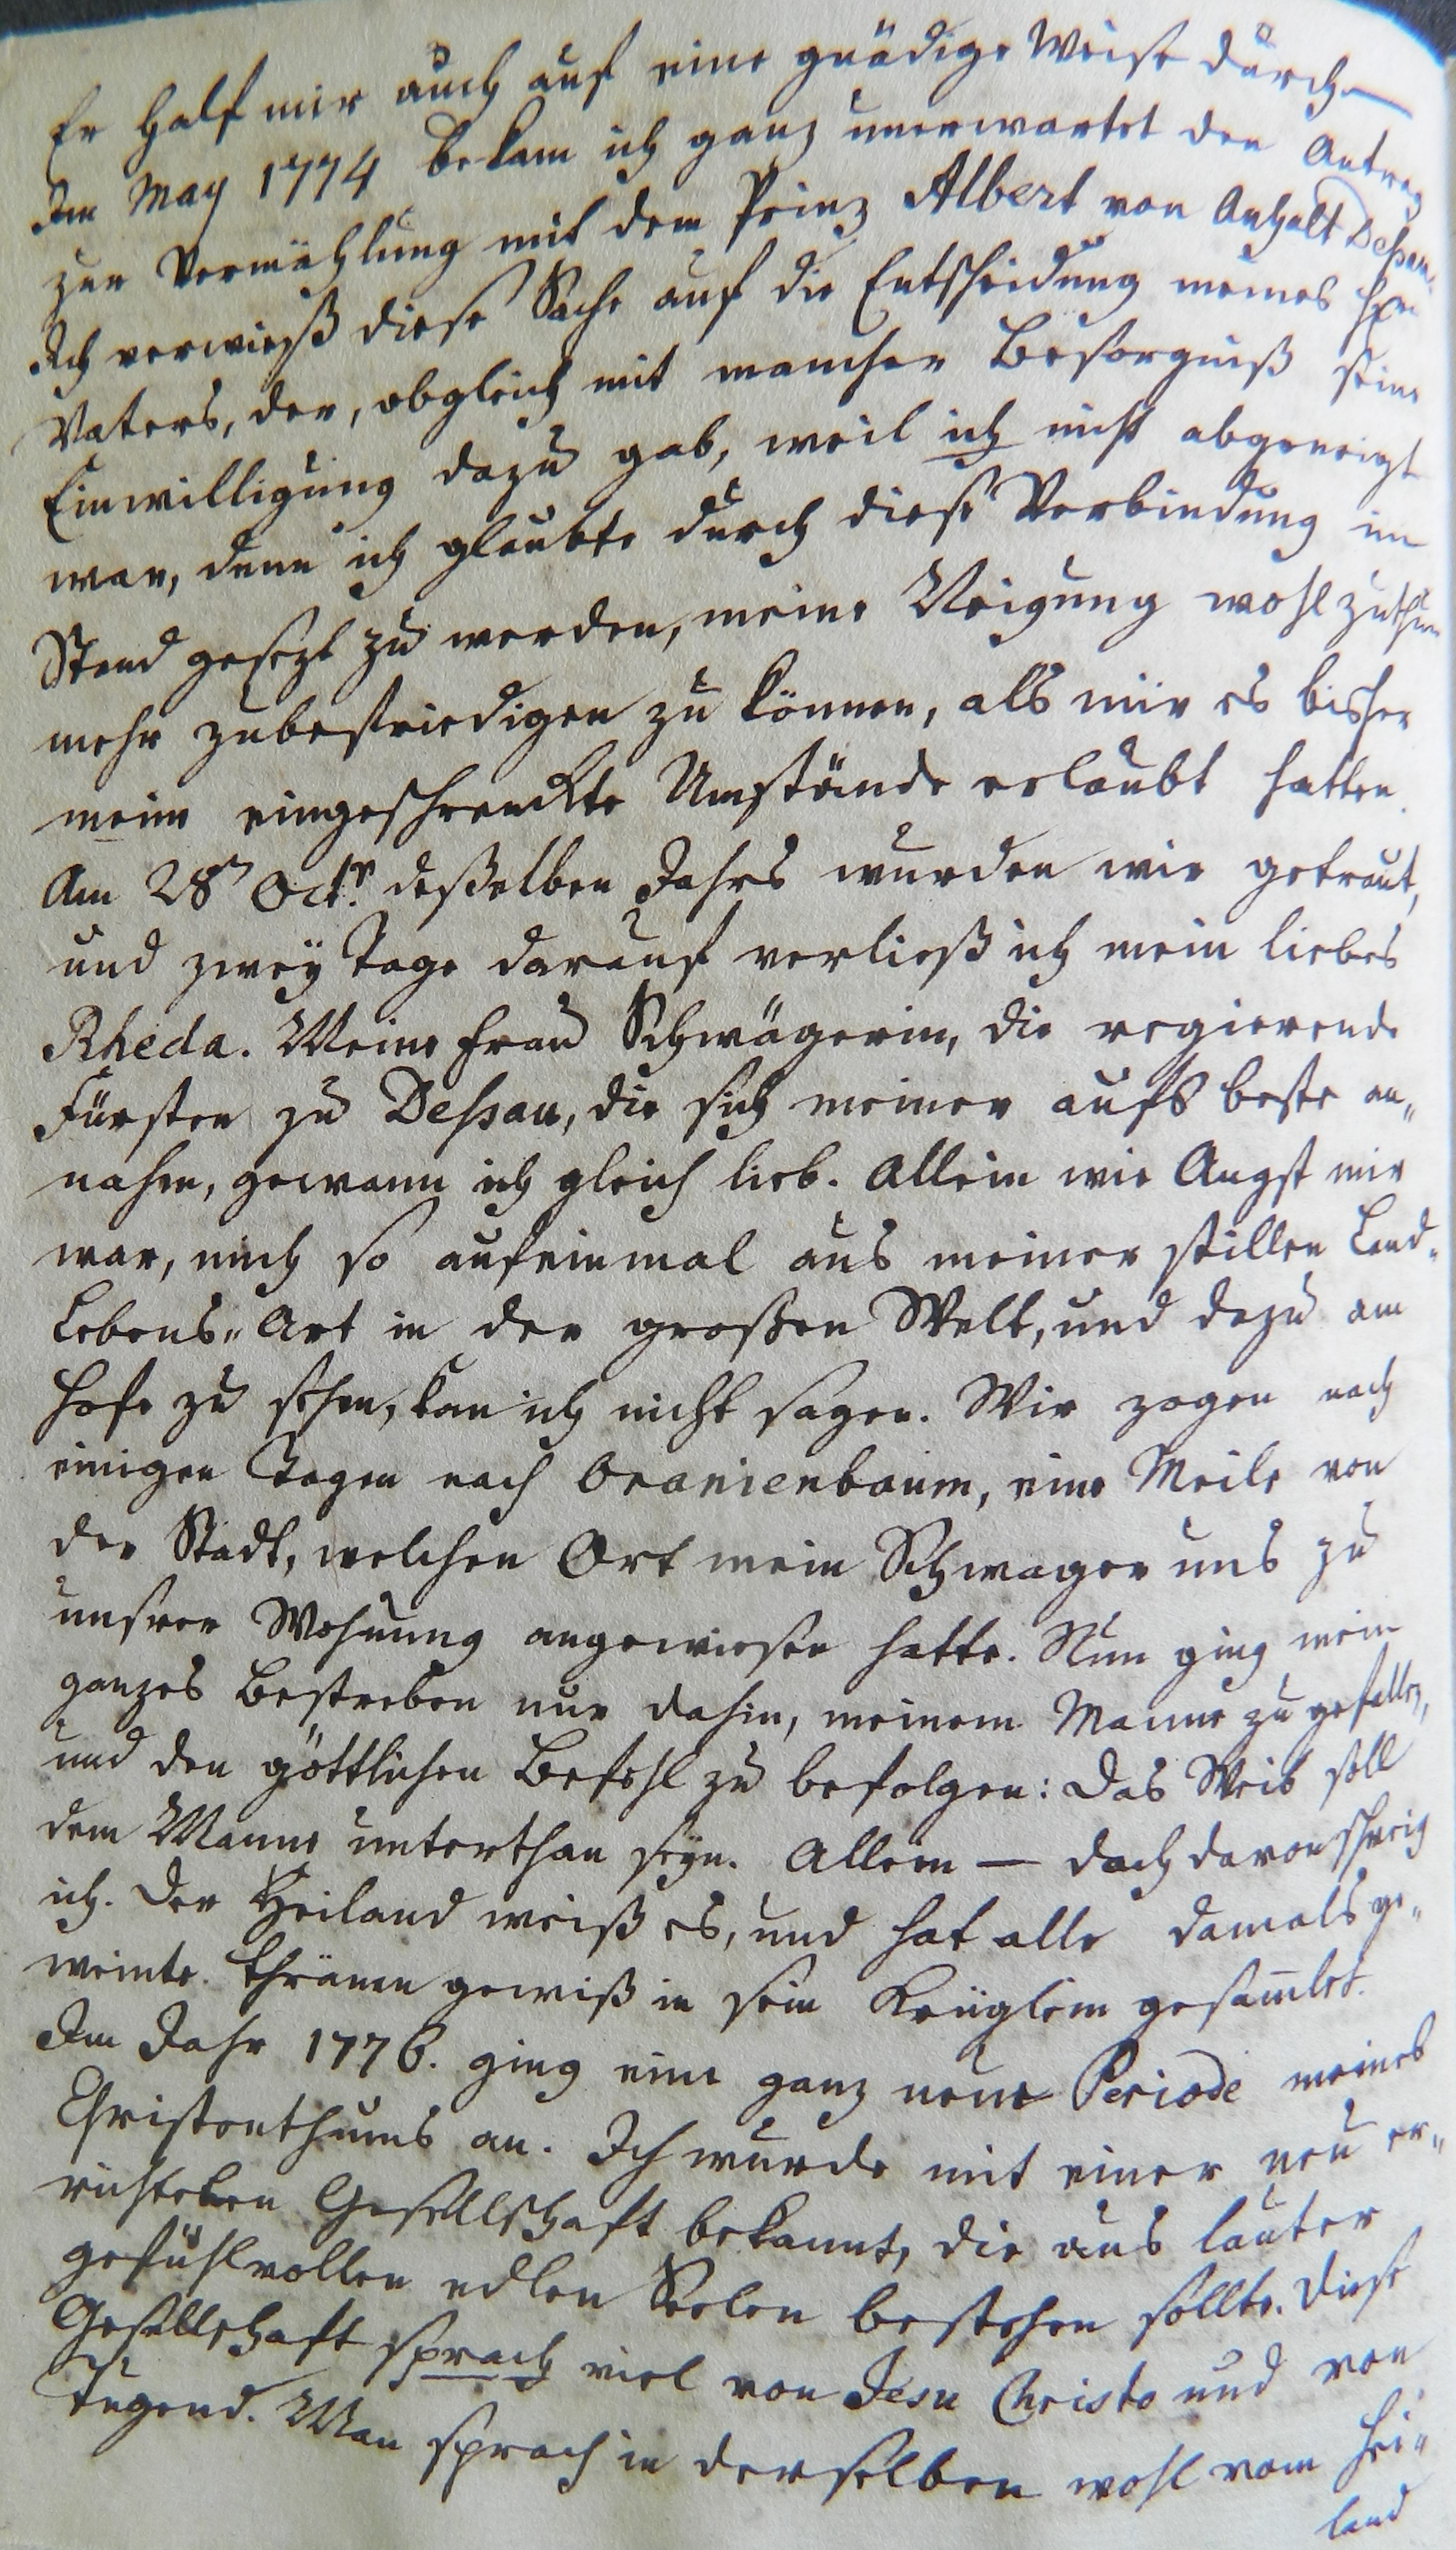 Er half mir auch auf eine gnädige Weise durch.—
Im May 1774 bekam ich ganz unerwartet den Antrag
zur Vermählung mit dem Prinz Albert von Anhalt Deßau.
Ich verwieß diese Sache auf die Entscheidung meines Hrn
Vaters, der, obgleich mit mancher Besorgniß seine
Einwilligung dazu gab, weil ich nicht abgeneigt
war, denn ich glaubte durch diese Verbindung im
Stand gesezt zu werden, meine Neigung wohlzuthun
mehr zubefriedigen zu können, als mir es bisher
meine eingeschrenckte Umstände erlaubt hatten.
Am 28n Octr. deßelben Jahrs wurden wir getraut,
und zwey Tage darauf verließ ich mein liebes
Rheda. Meine Frau Schwägerin, die regierende
Fürsten zu Deßau, die sich meiner aufs beste an„
nahm, gewann ich gleich lieb. Allein wie Angst mir
war, mich so aufeinmal aus meiner stillen Land„
Lebens„Art in der großen Welt, und dazu am
Hofe zu sehen, kan ich nicht sagen. Wir zogen nach
einigen Tagen nach Oranienbaum, eine Meile von
der Stadt, welchen Ort mein Schwager uns zu
unsrer Wohnung angewiesen hatte. Nun ging mein
ganzes Bestreben nur dahin, meinem Manne zu gefallen,
und den göttlichen Befehl zu befolgen: Das Weib soll
dem Manne unterthan seyn. Allein — doch davon schweig
ich. Der Heiland weiß es, und hat alle damals ge„
weinte Thränen gewiß in sein Krüglein gesam̅let.
Im Jahr 1776. ging eine ganz neue Periode meines
Christenthums an. Ich wurde mit einer neu er„
richteten Gesellschaft bekannt, die aus lauter
gefühlvollen edlen Seelen bestehen sollte. Diese
Gesellschaft sprach viel von Jesu Christo und von
Tugend. Man sprach in derselben wohl vom Hei„
land